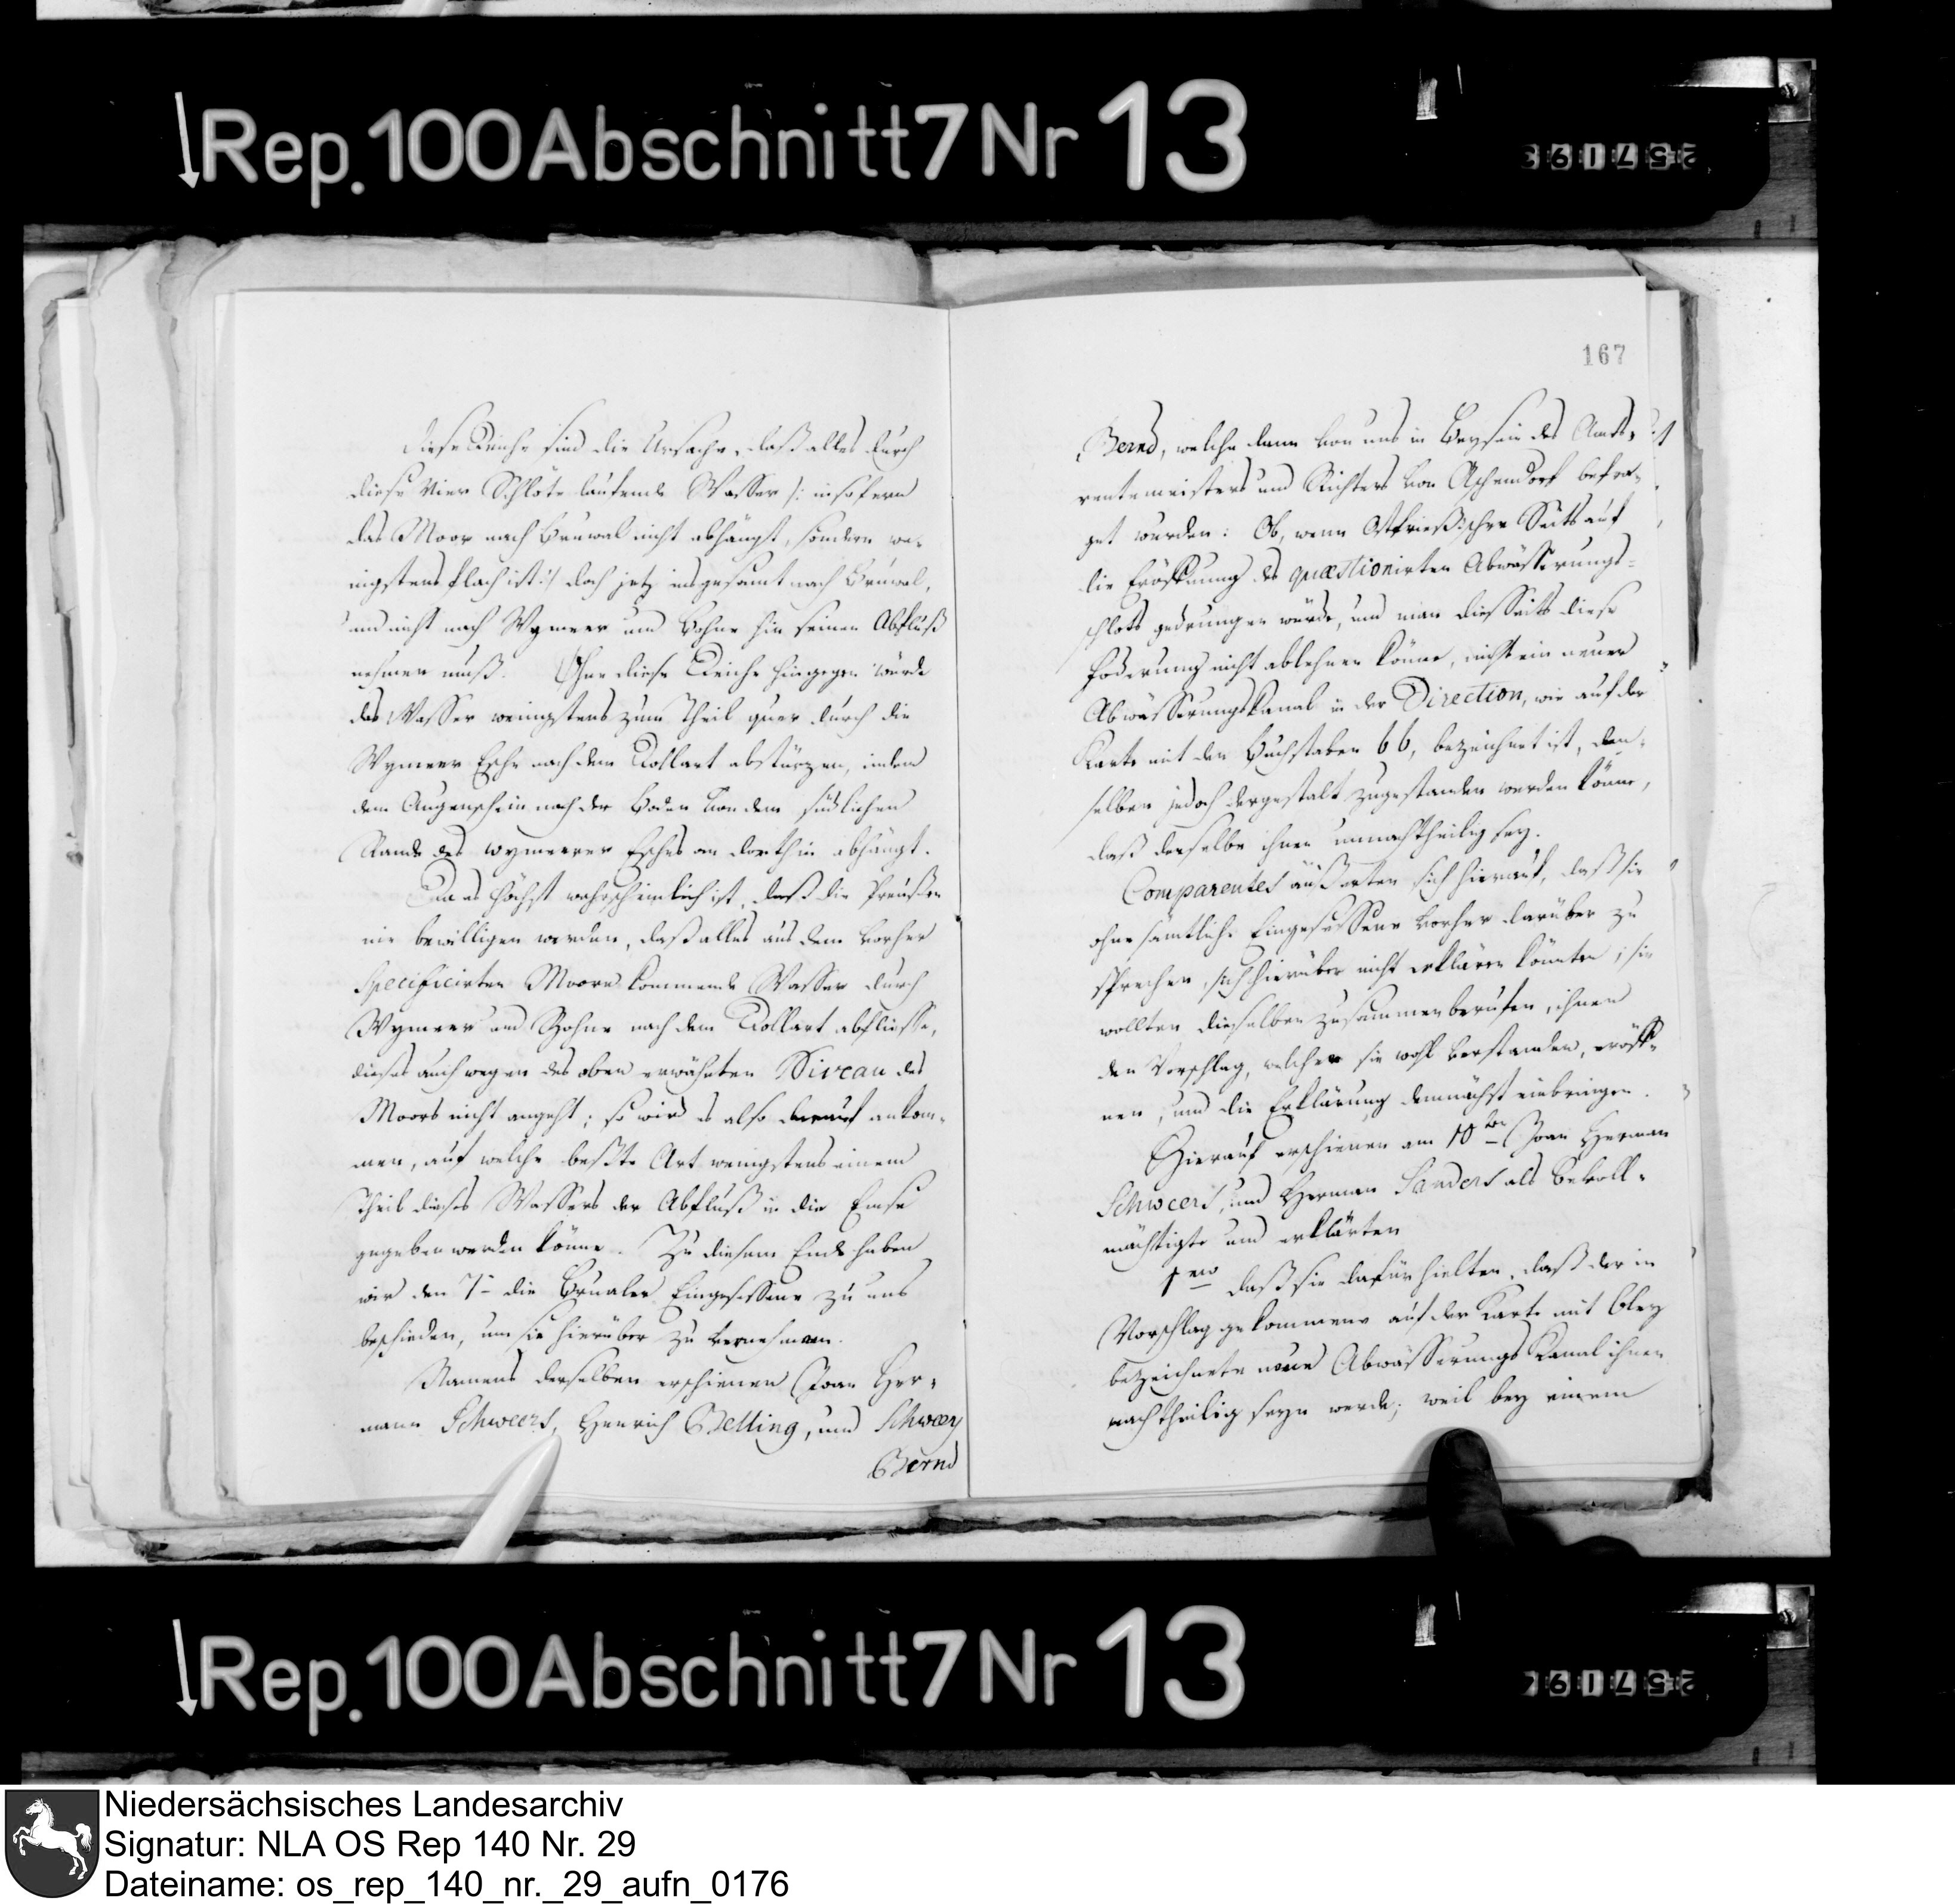 Rep. 100 Abschnitt 7 Nr 13
167
Diese Deiche sind die Ursache, daß alles durch
diese vier Schlöte laufende Wasser /: in sofern
das Moor nach Bruwal nicht abhängt, sondern we-
nigstens flach ist :/ doch jetz insgesamt nach Bruwal,
und nicht nach Wymeer und Bohne hin seinen Abfluß
nehmen muß. Ohne diese Deiche hingegen würde
das Wasser wenigstens zum Theil quer durch die
Wymeer Esche nach dem Dollart abstürzen, indem
dem Augenschein nach der Boden von dem südlichen
Rande des Wymeerer Esches an dorthin abhängt.
Da es höchst wahrscheinlich ist, daß die Preußen
nie bewilligen werden, daß alles aus dem vorher
specificirten Moore kommende Wasser durch
Wymeer und Bohne nach dem Dollart abfliesse,
dieses auch wegen des oben erwähnten Niveau des
Moors nicht angeht; so wird es also darauf ankom-
men, auf welche beßte Art wenigstens einem
Theil dieses Wassers der Abfluß in die Emse
gegeben werden könne. Zu diesem Ende haben
wir den 7- die Brualer Eingesessene zu uns
beschieden, um sie hierüber zu vernehmen.
Namens derselben erschienen Joan Her-
mann Schweers, Henrich Belling, und Schweer
Bernd
Bernd, welche dann von uns in Beysein des Amts-
rentemeisters und Richters von Aschendorf befra-
get wurden: Ob, wenn Ostfrießischer Seits auf
die Eröffnung des quæstionirten Abwässerungs-
schlots gedrungen würde, und man diesseits diese
Foderung nicht ablehnen könne, nicht ein neuer
Abwässerungskanal in der Direction, wie auf der
Karte mit den Buchstaben bb, bezeichnet ist, den-
selben jedoch dergestalt zugestanden werden könne,
daß derselbe ihnen unnachtheilig sey.
Comparentes äußerten sich hierauf, daß sie
ohne sämtliche Eingesessene vorher darüber zu
sprechen, sich hierüber nicht erklären könnten; sie
wollten dieselben zusammenberufen, ihnen
den Vorschlag, welchen sie wohl verstanden, eröff-
nen, und die Erklärung demnächst einbringen.
Hierauf erschienen am 10ten Joan Herman
Schweers, und Herman Sanders als Bevoll-
mächtigte und erklärten
1mo daß sie dafür hielten, daß der in
Vorschlag gekommene auf der Karte mit Bley
bezeichnete neue Abwässerungs Kanal ihnen
nachtheilig seyn werde; weil bey einem
Rep. 100 Abschnitt 7 Nr 13
Niedersächsisches Landesarchiv
Signatur: NLA OS Rep 140 Nr. 29
Dateiname: os_rep_140_nr._29_aufn_0176